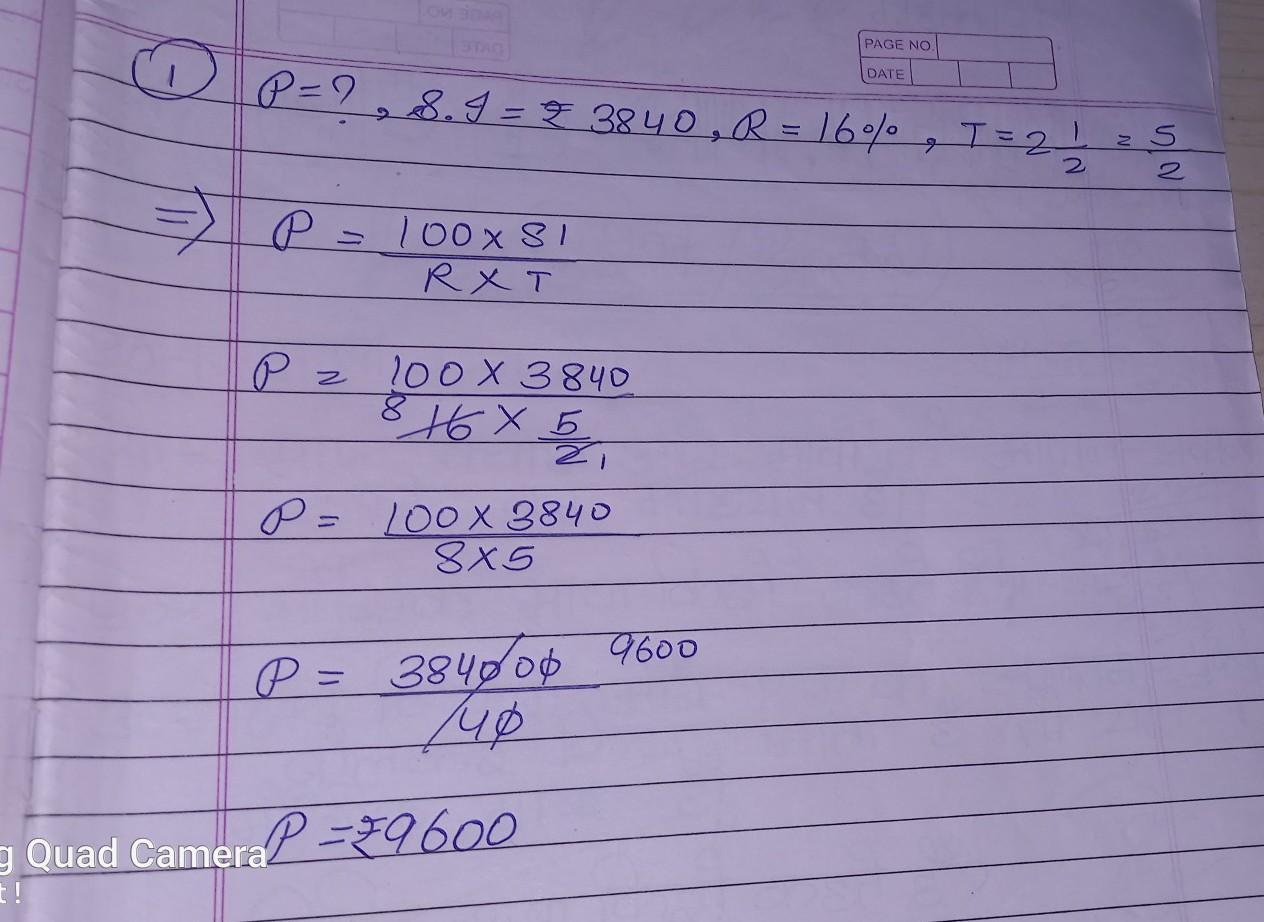 PAGE NO.
DATE
1 P = ?, S.I = ₹ 3840, R = 16%, T = 2 1/2 = 5/2
⇒ P = 100 × SI / R × T
P = 100 × 3840 / 8 16 × 5/2 1
P = 100 × 3840 / 8 × 5
P = 384000 / 40 9600
P = ₹9600
g Quad Camera
t!